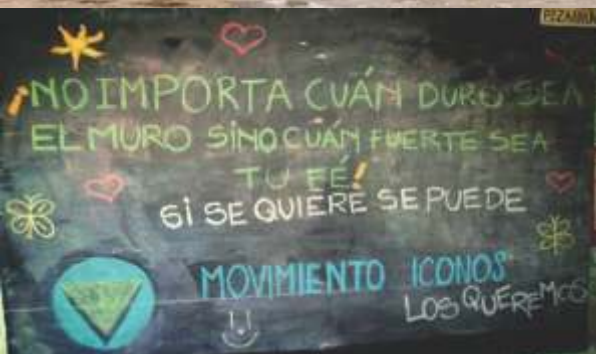 ¡NO IMPORTA CUÁN DURO SEA
EL MURO SINO CUÁN FUERTE SEA
TU FÉ!
SI SE QUIERE SE PUEDE
MOVIMIENTO ICONOS
LOS QUEREMOS